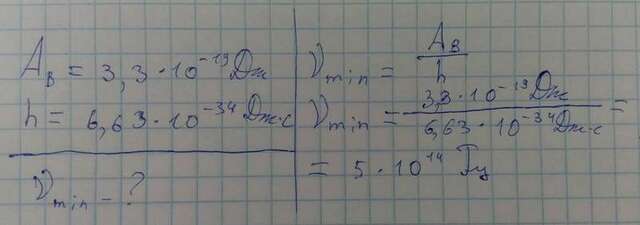 Aв = 3,3 · 10⁻¹⁹ Дж
h = 6,63 · 10⁻³⁴ Дж·с
νmin - ?
νmin = Aв / h
νmin = 3,3 · 10⁻¹⁹ Дж / 6,63 · 10⁻³⁴ Дж·с =
= 5 · 10¹⁴ Гц